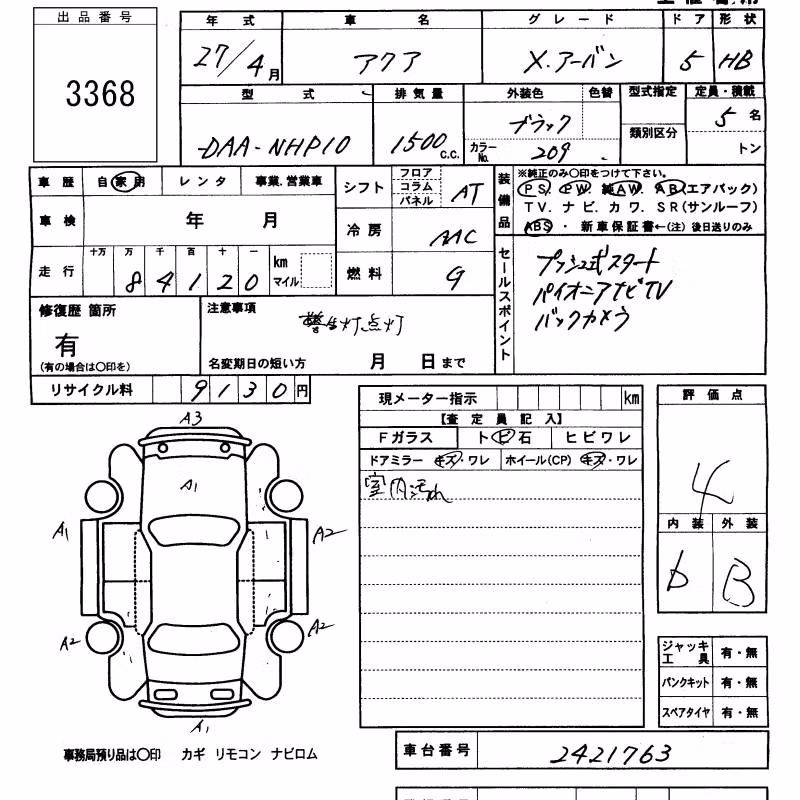 出品番号
3368
年式 車名 グレード ドア 形状
27/4月 アクア X.アーバン 5 HB
型式 排気量 外装色 色替 型式指定 定員・積載
DAA-NHP10 1500c.c. ブラック カラーNo. 209 類別区分 5名 トン
車歴 自家用 レンタ 事業.営業車
車検 年 月
走行 十万 万 千 百 十 一 km マイル
84120
シフト フロア コラム パネル AT
冷房 AAC
燃料 G
装備品
※純正のみ〇印をつけて下さい。
PS. PW. 純AW. AB(エアバック)
TV.ナビ.カワ.SR(サンルーフ)
ABS ・ 新車保証書←(注)後日送りのみ
セールスポイント
プッシュ式スタート
パイオニアナビTV
バックカメラ
修復歴 箇所
有
(有の場合は〇印を)
注意事項
警告灯点灯
名変期日の短い方 月 日まで
リサイクル料 9130円
現メーター指示 km
【査定員記入】
Fガラス トビ石 ヒビワレ
ドアミラー キズ・ワレ ホイール(CP) キズ・ワレ
室内汚れ
評価点
4
内装 外装
b B
A3
A1
A1 A2
A2 A2
A1
ジャッキ工具 有・無
パンクキット 有・無
スペアタイヤ 有・無
事務局預り品は〇印 カギ リモコン ナビロム
車台番号 2421763